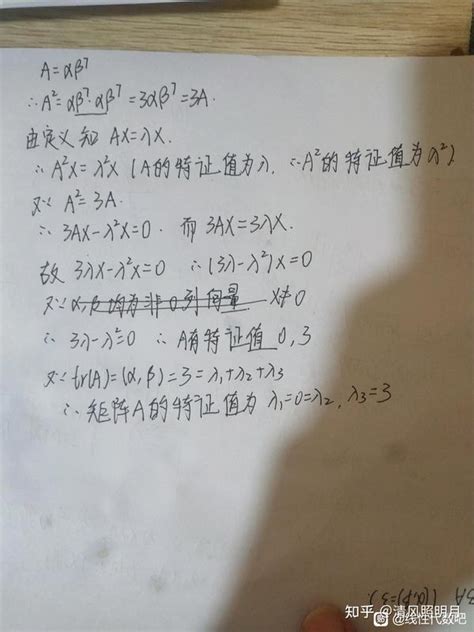 A=αβᵀ
∴A²=αβᵀ·αβᵀ=3αβᵀ=3A.
由定义知 AX=λX.
∴A²X=λ²X (A的特证值为λ, ∴A²的特证值为λ²)
又∵ A²=3A.
∴3AX-λ²X=0. 而 3AX=3λX.
故 3λX-λ²X=0 ∴(3λ-λ²)X=0
又∵α,β均为非0列向量 X≠0
∴3λ-λ²=0 ∴A有特证值 0,3
又∵tr(A)=(α,β)=3=λ₁+λ₂+λ₃
∴矩阵A的特证值为 λ₁=0=λ₂, λ₃=3
3A ((α,β)=3).
知乎@清风照明月
@线性代数吧